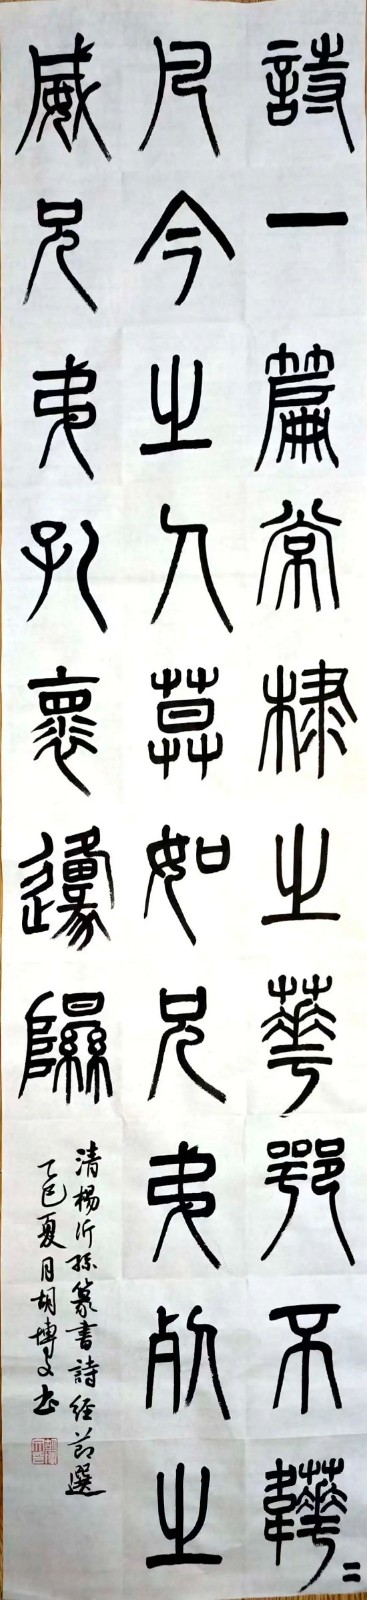 詩一篇常棣之華鄂不韡〻
凡今之人莫如兄弟死之
威兄弟孔褱邍隰
清楊沂孫篆書詩經节選
乙巳夏月胡博文书